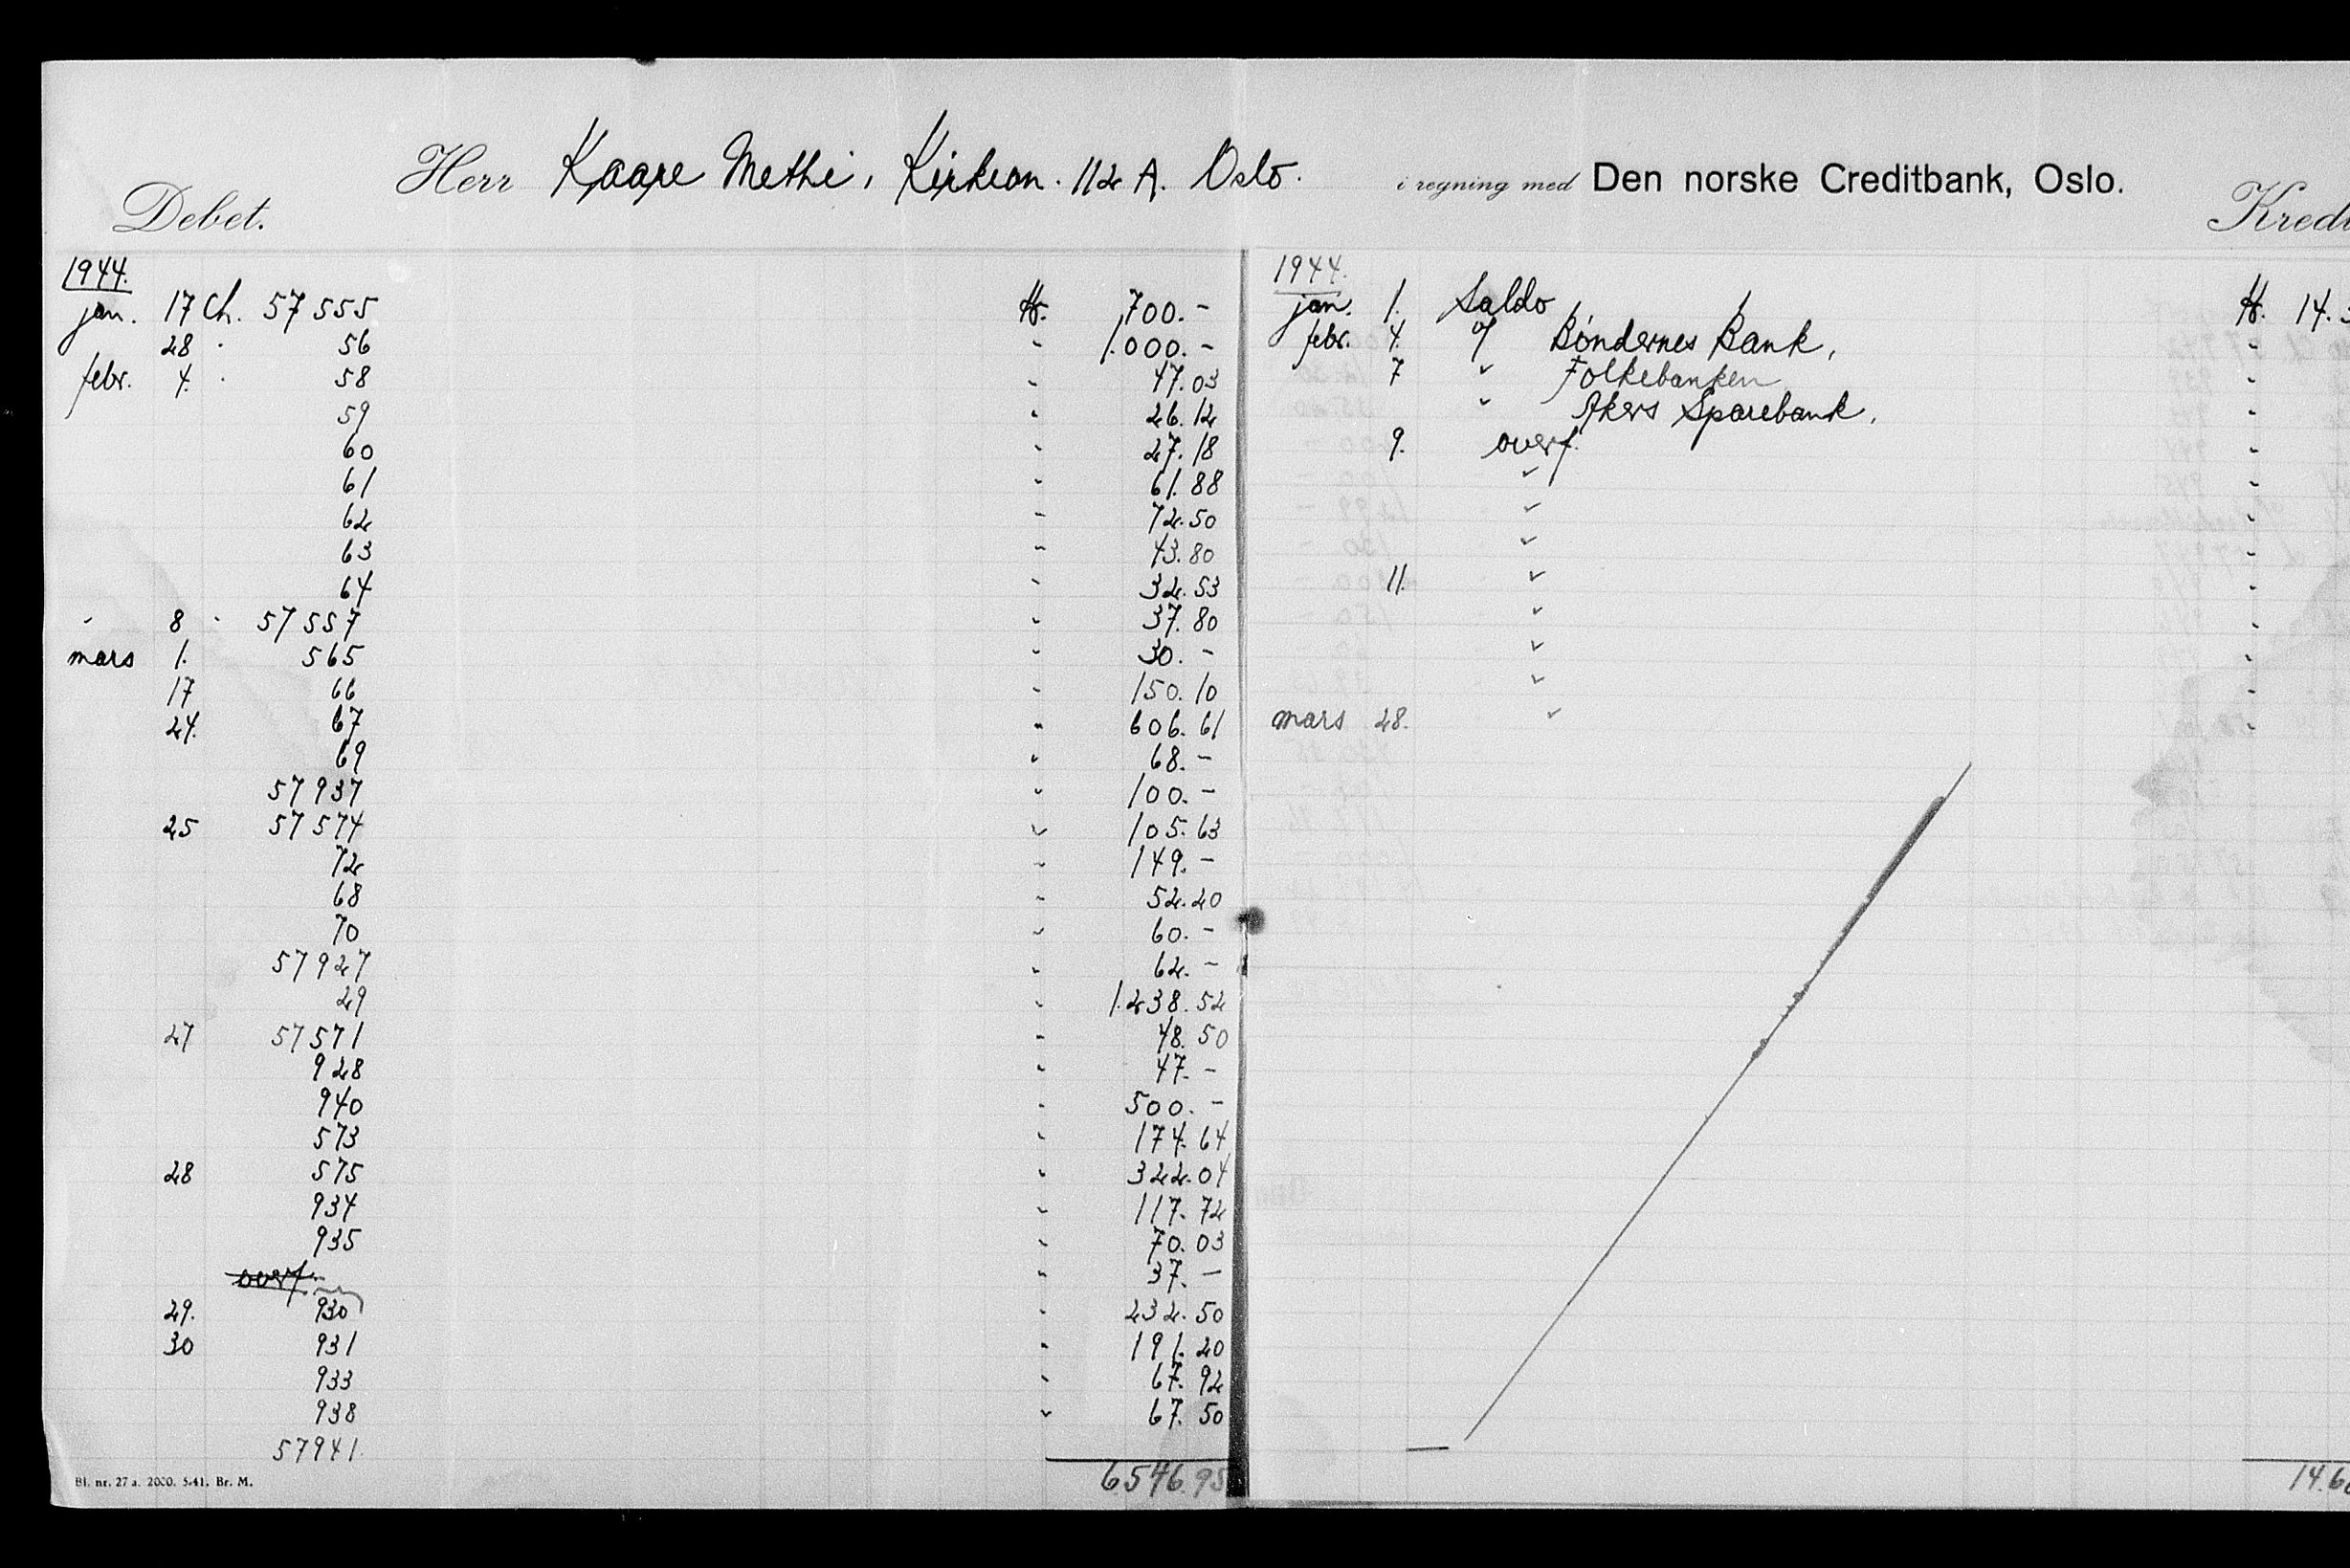 Herr Kaare Methi, Kirkevn. 112 A. Oslo. i regning med Den norske Creditbank, Oslo.
Debet. Kredi
1944.
jan. 17 Ch. 57555 Kr. 700.-
28 " 56 " 1.000.-
febr. 4. " 58 " 47.03
59 " 26.12
60 " 27.18
61 " 61.88
62 " 72.50
63 " 43.80
64 " 32.53
" 8 " 57557 " 37.80
mars 1. 565 " 30.-
17 66 " 150.10
24. 67 " 606.61
69 " 68.-
57937 " 100.-
25 57574 " 105.63
72 " 149.-
68 " 52.20
70 " 60.-
57927 " 62.-
29 " 1.238.52
27 57571 " 48.50
928 " 47.-
940 " 500.-
573 " 174.64
28 575 " 322.04
934 " 117.72
935 " 70.03
overf. " 37.-
29. 930 " 232.50
30 931 " 191.20
933 " 67.92
938 " 67.50
57941.
6546.95
Bl. nr. 27 a. 2000. 5.41. Br. M.
1944.
jan. 1. Saldo Kr. 14.3
febr. 4. % Bøndernes Bank, "
7 " Folkebanken "
" Akers Sparebank, "
9. overf. "
" "
" "
" "
11. " "
" "
" "
" "
mars 28. " "
14.6